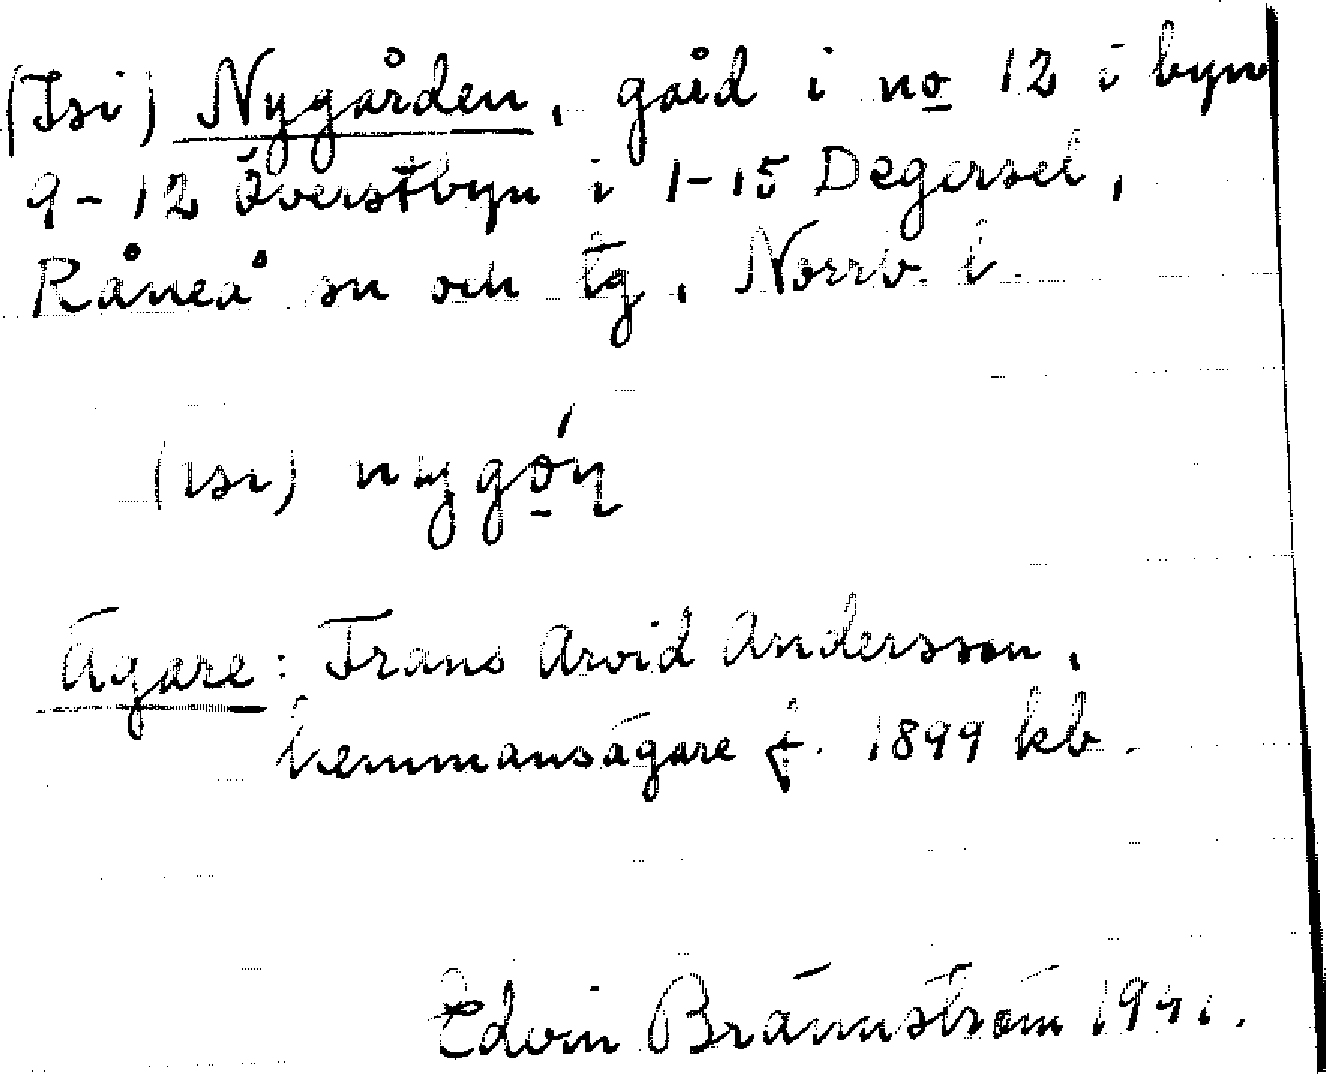 (Isi) Nygården, gård i no 12 i byn
9-12 Överstbyn i 1-15 Degersel,
Råneå sn och tg, Norrb. l.
(ısı) nygǫ́ṇ
Ägare: Frans Arvid Andersson,
hemmansägare f. 1899 kb.
Edvin Brännström 1941.